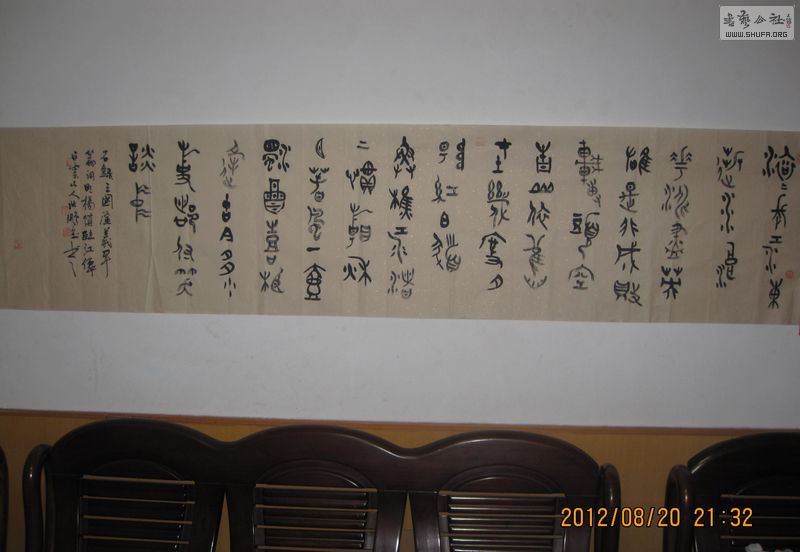 滾二長江東
逝水浪
花淘盡英
雄是非成敗
轉頭空
青山依舊
在幾度夕
陽紅白髮
漁樵江渚
上慣看秋
月春風一壺
濁酒喜相
逢古今多少
事都付笑
談中
右錄三國演義
篇詞明楊慎臨江僊
書藝公社
WWW.SHUFA.ORG
2012/08/20 21:32